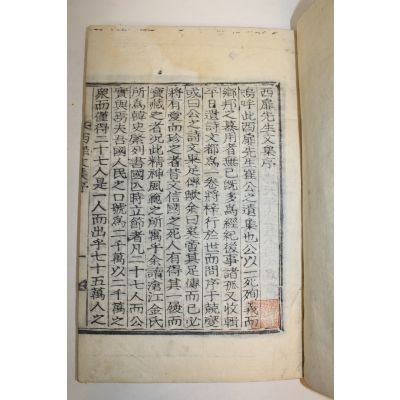 西扉先生文集序
嗚呼此西扉先生崔公之遺集也公以一死殉義而
鄕邦之慕用者無已旣多爲經紀後事諸孤又收輯
平日遺詩文都爲一卷將梓行於世而問序于兢燮
或曰公之詩文果足傳歟余曰奚啻其足傳而已必
將有愛而珍之者昔文信國之死人有得其一履而
寶藏之者況此精神風範之所寓乎余謂滄江金氏
所爲韓史綮列書國亾時立節者凡二十七人而公
實與焉夫吾國人民之口號爲二千萬以二千萬之
衆而僅得二十七人是一人而出乎七十五萬人之
西扉文集序